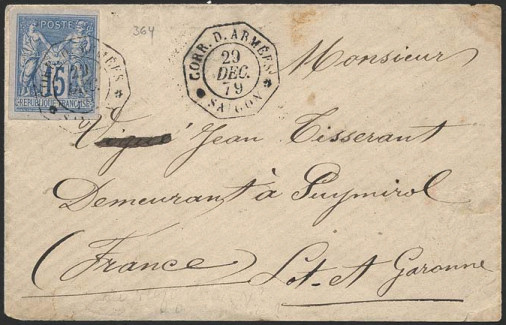 364
POSTE
15
REPUBLIQUE FRANÇAISE
CORR. D. ARMÉES
29
DEC.
79
SAIGON
Monsieur
Jean Tisserant
Demeurant à Puymirol
(France) Lot-et Garonne